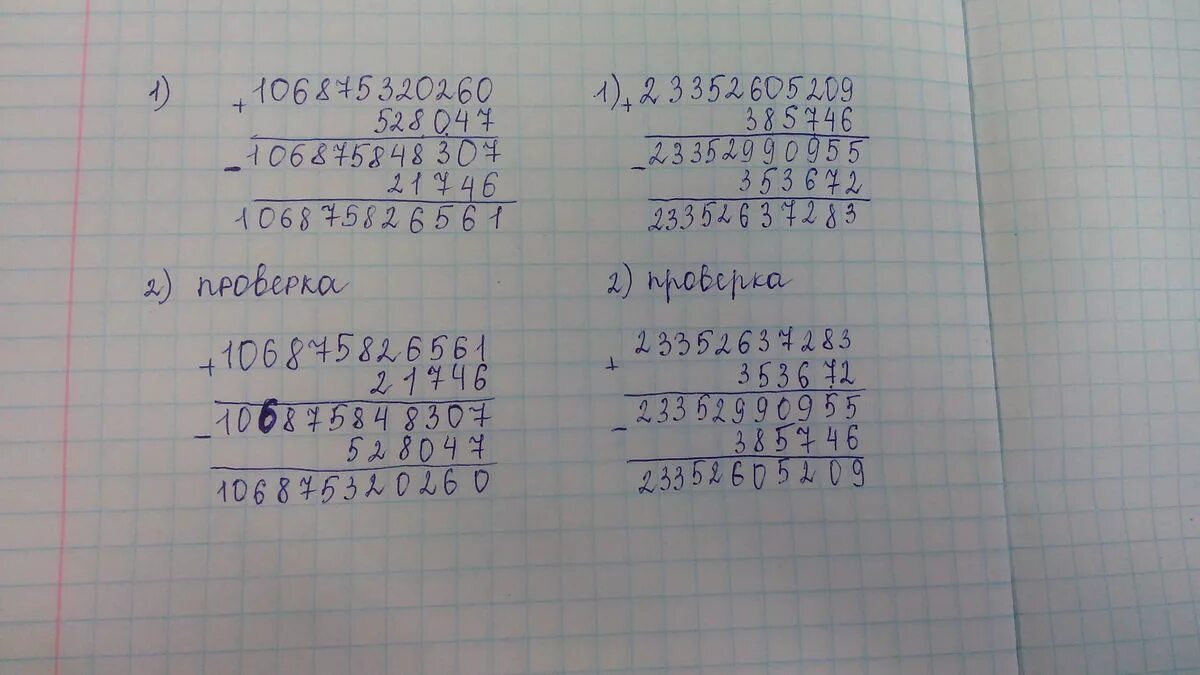 1) +106875320260
528047
-106875848307
21746
106875826561
2) проверка
+106875826561
21746
-106875848307
528047
106875320260
1) +23352605209
385746
-23352990955
353672
23352637283
2) проверка
+23352637283
353672
-23352990955
385746
23352605209